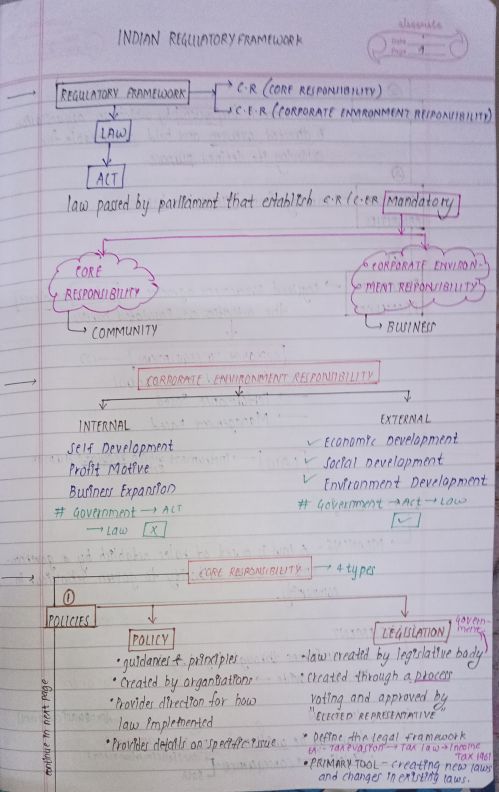 classmate
Date
Page 1
INDIAN REGULATORY FRAMEWORK
REGULATORY FRAMEWORK → C.R (CORE RESPONSIBILITY)
→ C.E.R (CORPORATE ENVIRONMENT RESPONSIBILITY)
LAW
ACT
law passed by parliament that establish C.R / C.ER Mandatory
CORE
RESPONSIBILITY
→ COMMUNITY
CORPORATE ENVIRON-
MENT RESPONSIBILITY
→ BUSINESS
CORPORATE ENVIRONMENT RESPONSIBILITY
INTERNAL
Self Development
Profit Motive
Business Expansion
# Government → ACT
→ Law x
EXTERNAL
✓ Economic Development
✓ Social Development
✓ Environment Development
# Government → Act → Law
✓
CORE RESPONSIBILITY → 4 types
①
POLICIES
POLICY
• guidances & principles
• Created by organisations
• Provides direction for how
law implemented
• Provides details on specific issue
LEGISLATION
Govern-
ment
• law created by legislative body
• Created through a process
voting and approved by
"ELECTED REPRESENTATIVE"
• Define the legal framework
Ex:- Tax evasion → Tax law → Income
Tax 1961
• PRIMARY TOOL - creating new laws
and changes in existing laws.
continue in next page